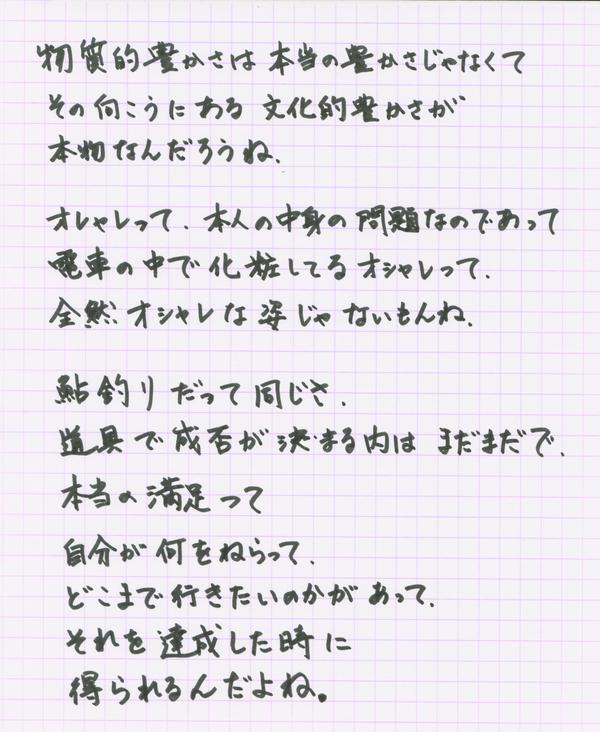 物質的豊かさは本当の豊かさじゃなくて
その向こうにある文化的豊かさが
本物なんだろうね、
オシャレって、本人の中身の問題なのであって
電車の中で化粧してるオシャレって、
全然オシャレな姿じゃないもんね、
鮎釣りだって同じさ、
道具で成否が決まる内はまだまだで、
本当の満足って
自分が何をねらって、
どこまで行きたいのかがあって、
それを達成した時に
得られるんだよね。